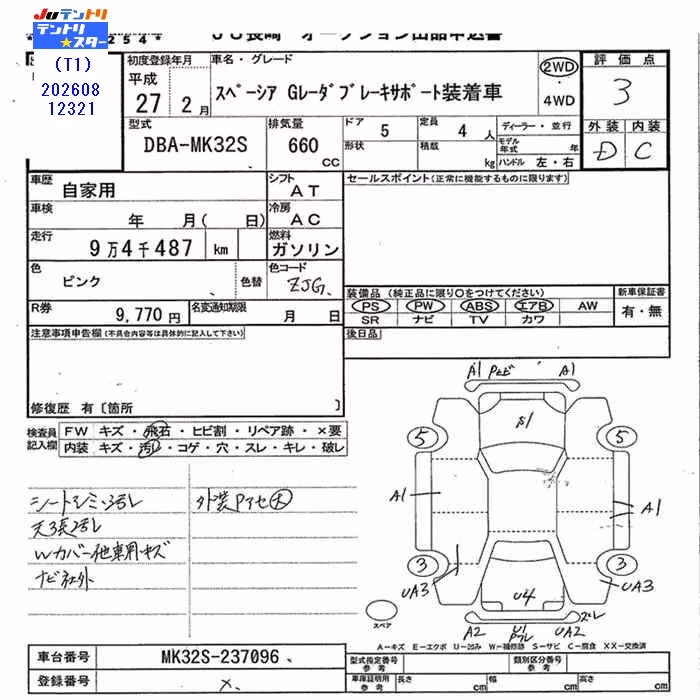 JUテントリ
テントリ★スター
(T1)
202608
12321
254*
JU長崎 オークション出品申込書
初度登録年月
平成
27 2月
車名・グレード
スペーシア Gレーダブレーキサポート装着車
2WD
4WD
評価点
3
外装 内装
D C
型式
DBA-MK32S
排気量
660
CC
ドア 5
定員 4人
形状
積載 kg
ディーラー・並行
モデル年式 年
ハンドル 左・右
車歴
自家用
シフト
AT
車検
年 月( 日)
冷房
AC
走行
9万4千487 km
燃料
ガソリン
色
ピンク
色替
色コード
ZJG
R券
9,770円
名変通知期限
月 日
セールスポイント(正常に機能するものに限ります)
装備品 (純正品に限り○をつけてください)
PS PW ABS エアB AW
SR ナビ TV カワ
新車保証書
有・無
後日品
注意事項申告欄(不具合内容等は具体的に記入して下さい)
修復歴 有〔箇所 〕
検査員記入欄
FW キズ・飛石・ヒビ割・リペア跡・×要
内装 キズ・汚レ・コゲ・穴・スレ・キレ・破レ
シートシミ・汚レ
天張汚レ
Wカバー他車用キズ
ナビ社外
外装Pアセ大
A1 Pヒビ A1
S1
5 5
A1
A1
3 3
UA3
UA3
U4
A2 U1 Pワレ UA2 ズレ
スペア
A-キズ E-エクボ U-凹み W-補修跡 S-サビ C-腐食 XX-交換済
車台番号
MK32S-237096
登録番号
×
型式指定番号
参考
類別区分番号
参考
車庫証明用
参考
長さ cm
幅 cm
高さ cm